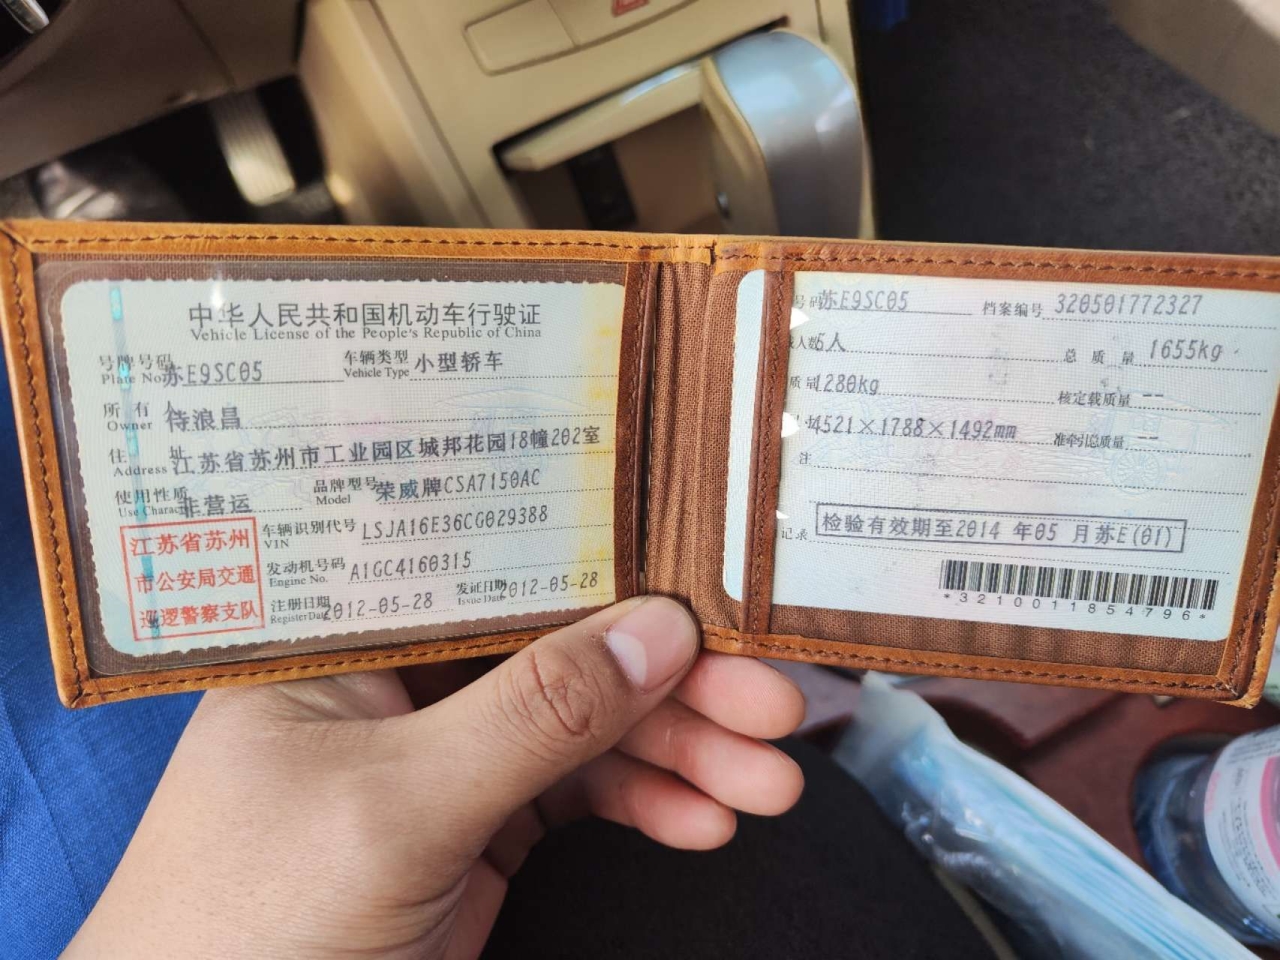 中华人民共和国机动车行驶证
Vehicle License of the People's Republic of China
号牌号码 苏E9SC05 车辆类型 小型轿车
Plate No. Vehicle Type
所有人 待浪昌
Owner
住址 江苏省苏州市工业园区城邦花园18幢202室
Address
使用性质 非营运 品牌型号 荣威牌CSA7150AC
Use Character Model
江苏省苏州
市公安局交通
巡逻警察支队
车辆识别代号 LSJA16E36CG029388
VIN
发动机号码 A1GC4160315
Engine No.
注册日期 2012-05-28 发证日期 2012-05-28
Register Date Issue Date
号码 苏E9SC05 档案编号 320501772327
人数 5人 总质量 1655kg
质量 1280kg 核定载质量 --
4521×1788×1492mm 准牵引总质量 --
注
记录 检验有效期至2014年05月苏E(01)
*3210011854796*